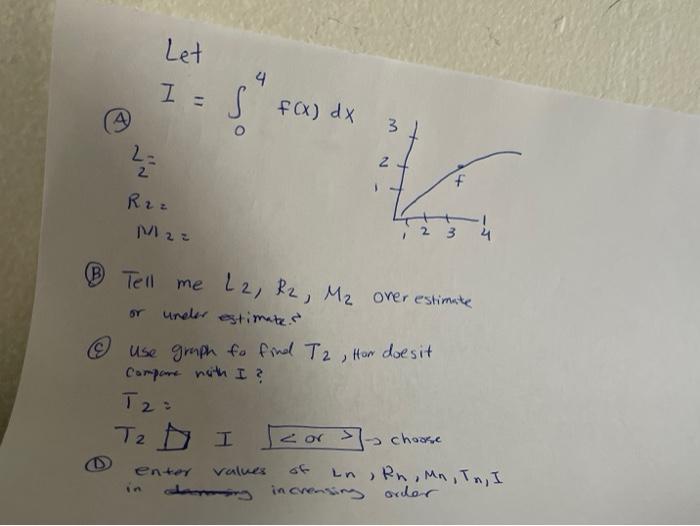 Let
I = ∫₀⁴ f(x) dx
Ⓐ
L₂ =
R₂ =
M₂ =
3
2
1
f
1 2 3 4
Ⓑ Tell me L₂, R₂, M₂ over estimate
or under estimate?
Ⓒ use graph to find T₂, How does it
compare with I?
T₂ =
T₂ I < or > → choose
Ⓓ enter values of Ln, Rn, Mn, Tn, I
in increasing order